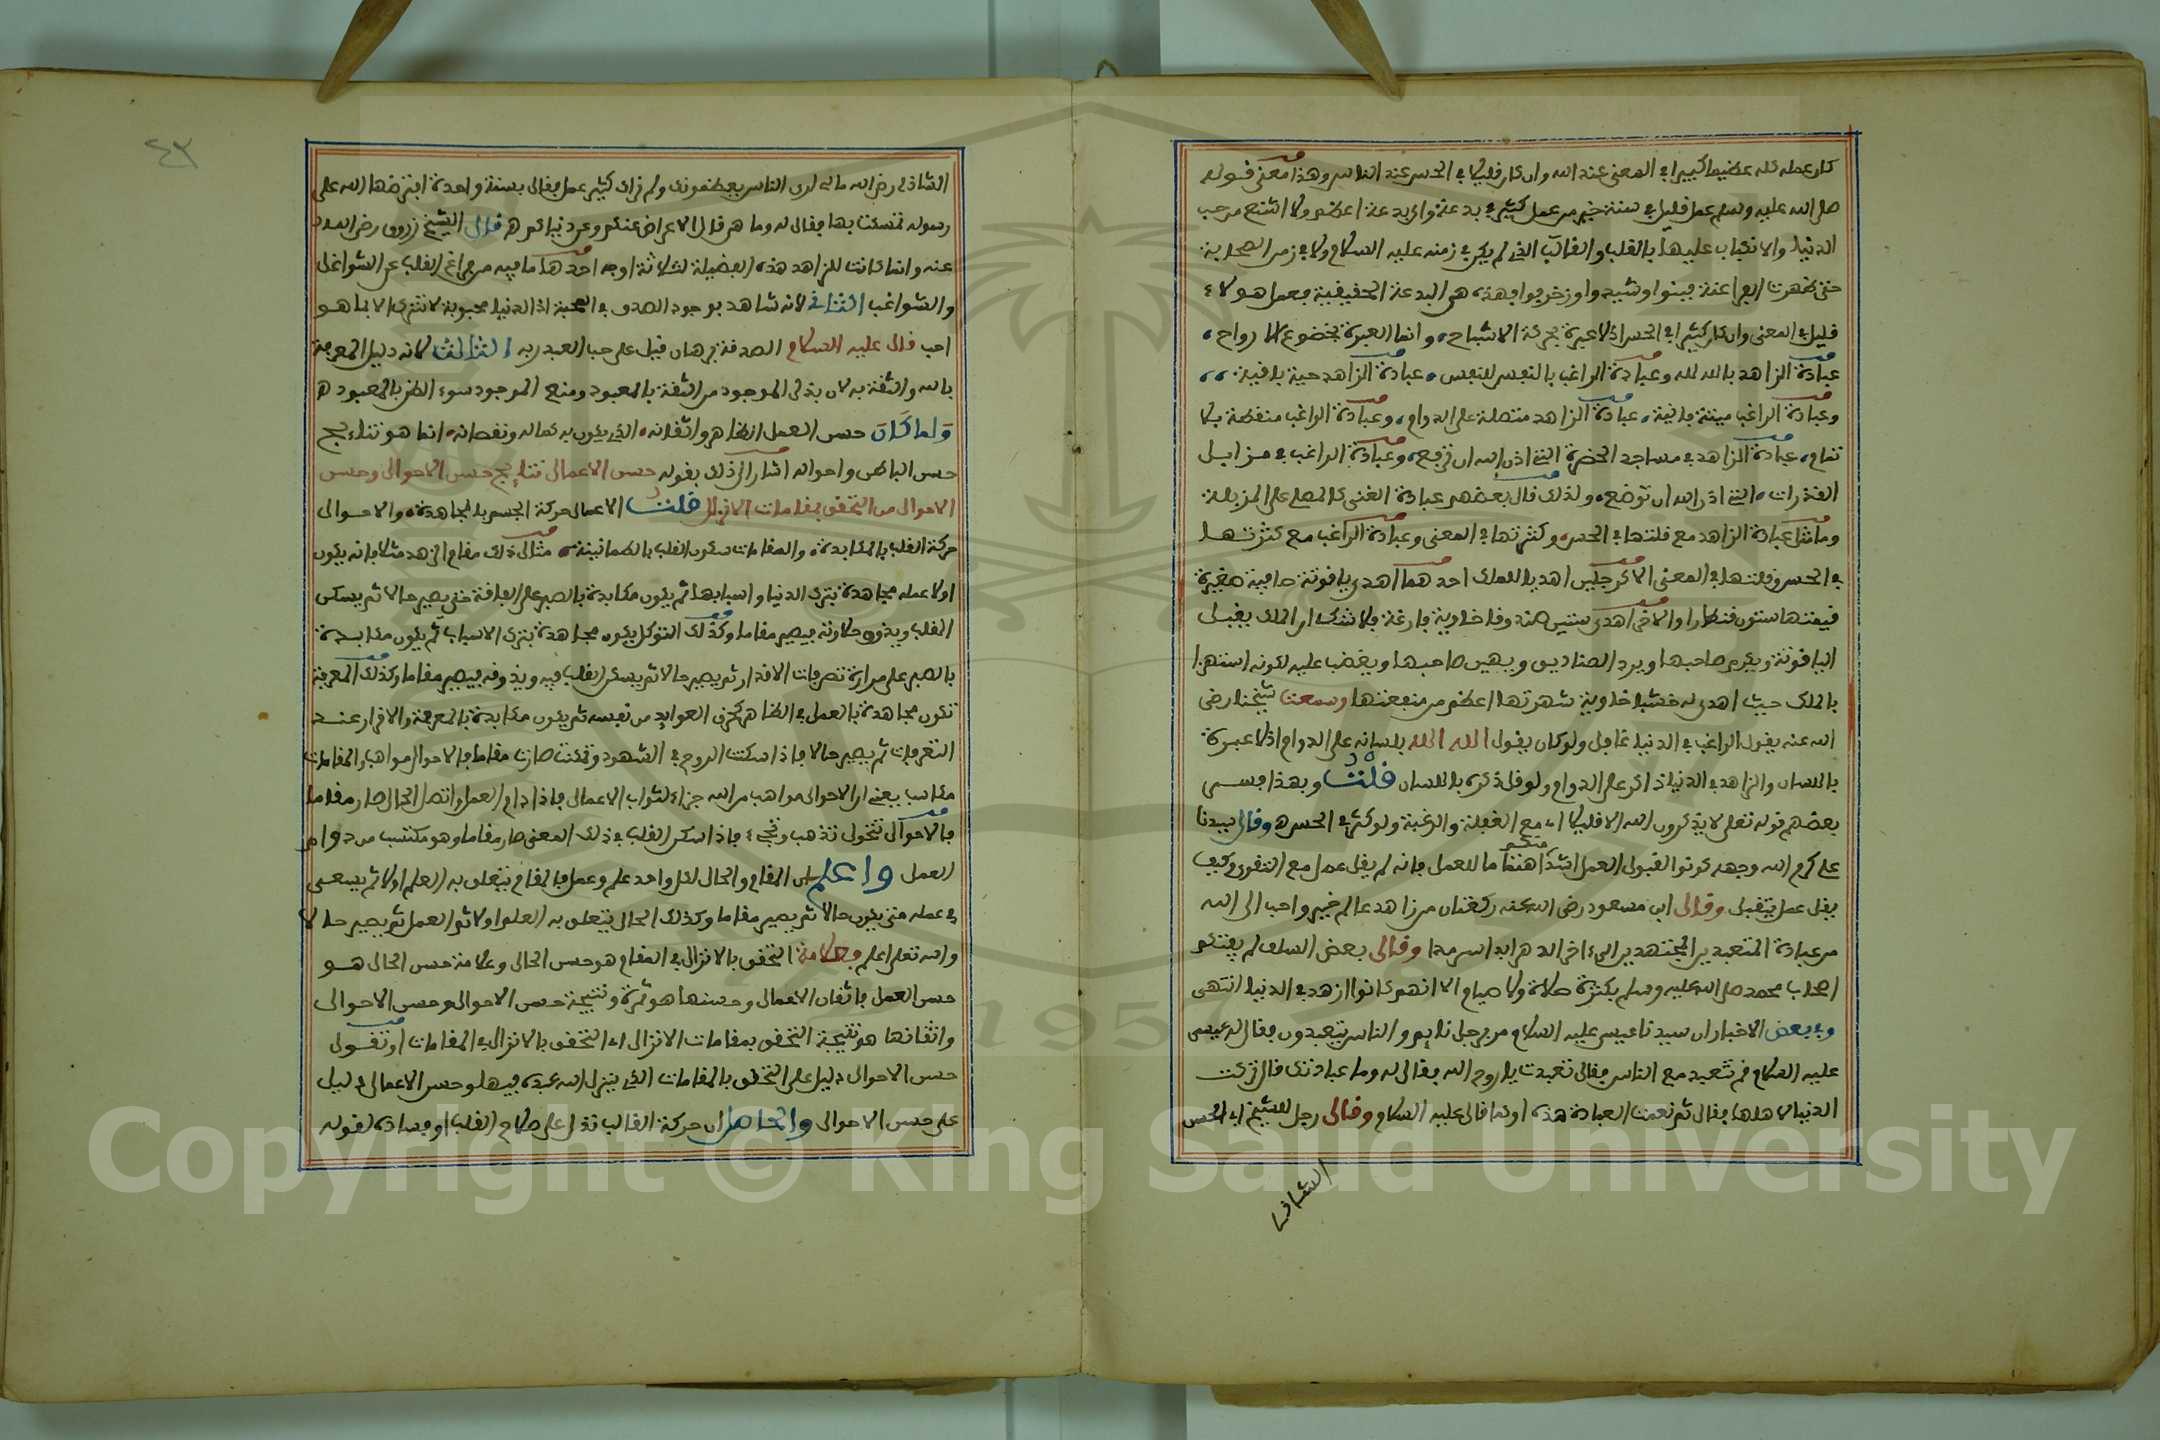 كان عمله كله عظيما كبيرا في المعنى عند الله وان كان قليلا في الحس عند الناس وهذا معنى قوله
صلى الله عليه وسلم عمل قليل في سنة خير من عمل كثير في بدعة واي بدعة اعظم ولا اشنع من حب
الدنيا والانكباب عليها بالقلب والقالب الذي لم يكن في زمنه عليه السلام ولا في زمن الصحابة
حتى ظهرت الفراعنة فبنوا وشيدوا وزخرفوا فهذه هي البدعة الحقيقية فعمل هولاء
قليل في المعنى وان كان كثيرا في الحس اذ لا عبرة بحركة الاشباح، وانما العبرة بخضوع الارواح،
عبادة الزاهد بالله لله وعبادة الراغب بالنفس للنفس، عبادة الزاهد حية باقية،،
وعبادة الراغب ميتة فانية، عبادة الزاهد متصلة على الدوام، وعبادة الراغب منقطعة بلا
تمام، عبادة الزاهد في مساجد الحضرة التي اذن الله ان ترفع، وعبادة الراغب في مزابل
القذرات، التي اذن الله ان توضع، ولذلك قال بعضهم عبادة الغني كالمصلي على المزبلة
وما مثل عبادة الزاهد مع قلتها في الحس، وكثرتها في المعنى وعبادة الراغب مع كثرتها
في الحس وقلتها في المعنى الا كرجلين اهديا للملك احدهما اهدى ياقوتة صافية صغيرة
قيمتها ستون قنطارا والاخر اهدى ستين صندوقا خاوية فارغة فلا شك ان الملك يقبل
الياقوتة ويكرم صاحبها ويرد الصناديق ويهين صاحبها ويغضب عليه لكونه استهزا
بالملك حيث اهدى له خشبا خاوية شهرتها اعظم من منفعتها وسمعت شيخنا رضي
الله عنه يقول الراغب في الدنيا غافل ولو كان يقول الله الله بلسانه على الدوام اذ لا عبرة
باللسان والزاهد في الدنيا ذاكر على الدوام ولو قل ذكره باللسان قلت وبهذا فسر
بعضهم قوله تعلى لا يذكرون الله الا قليلا اي مع الغفلة والرغبة ولو كثر في الحس ه وقال سيدنا
علي كرم الله وجهه كونوا لقبول العمل اشد اهتماما منكم للعمل فانه لم يقل عمل مع التقوى وكيف
يقل عمل يتقبل وقال ابن مسعود رضي الله عنه ركعتان من زاهد عالم خير واحب الى الله
من عبادة المتعبدين المجتهدين الى اخر الدهر ابدا سرمدا وقال بعض السلف لم يفتكم
اصحاب محمد صلى الله عليه وسلم بكثرة صلاة ولا صيام الا انهم كانوا ازهد في الدنيا انتهى
وفي بعض الاخبار ان سيدنا عيسى عليه السلام مر برجل نايم والناس يتعبدون فقال له عيسى
عليه السلام قم تتعبد مع الناس فقال تعبدت يا روح الله فقال له وما عبادتك قال تركت
الدنيا لاهلها فقال نم نعمت العبادة هذه او كما قال عليه السلام وقال رجل للشيخ ابي الحسن
الشاذلي
٤٣
الشاذلي رضي الله مالي ارى الناس يعظمونك ولم نرى كثير عمل فقال بسنة واحدة افترضها الله على
رسوله تمسكت بها فقال له وما هي قال الاعراض عنكم وعن دنياكم ه قال الشيخ زروق رضي الله
عنه وانما كانت للزاهد هذه الفضيلة لثلاثة اوجه احدها ما فيه من فراغ القلب عن الشواغل
والشواغب الثاني لانه شاهد بوجود الصدق في المحبة اذ الدنيا محبوبة لا تترك الا بما هو
احب قال عليه السلام الصدقة برهان قيل على حب العبد ربه الثالث لانه دليل المعرفة
بالله والثقة به لان بذل الموجود من الثقة بالمعبود ومنع الموجود سوء الظن بالمعبود ه
ولما كان حسن العمل الظاهر واتقانه، الذي يكون به كماله ونقصانه، انما هو نتايج
حسن الباطن واحواله اشار الى ذلك بقوله حسن الاعمال نتايج حسن الاحوال وحسن
الاحوال من التحقق بمقامات الانزال قلت الاعمال حركة الجسم بالمجاهدة، والاحوال
حركة القلب بالمكابدة، والمقامات سكون القلب بالطمانينة، مثال ذلك مقام الزهد مثلا فانه يكون
اولا عمله مجاهدة بترك الدنيا واسبابها ثم يكون مكابدة بالصبر على الفاقة حتى يصير حالا ثم يسكن
القلب ويذوق حلاوته فيصير مقاما وكذلك التوكل يكون مجاهدة بترك الاسباب ثم يكون مكابدة
بالصبر على مرارة تصرفات الاقدار ثم يصير حالا ثم يسكن القلب فيه ويذوقه فيصير مقاما وكذلك المعرفة
تكون مجاهدة بالعمل في الظاهر كخرق العوايد من نفسه ثم يكون مكابدة بالمعرفة والاقرار عند
التعرفات ثم يصير حالا فاذا سكنت الروح في الشهود وتمكنت صارت مقاما فالاحوال مواهب والمقامات
مكاسب يعني ان الاحوال مواهب من الله جزاء لثواب الاعمال فاذا دام العمل واتصل الحال صار مقاما
فالاحوال تتحول تذهب وتجيء فاذا سكن القلب في ذلك المعنى صار مقاما وهو مكتسب من دوام
العمل واعلم ان المقام والحال لكل واحد علم وعمل فالمقام يتعلق به العلم اولا ثم يسعى
في عمله حتى يكون حالا ثم يصير مقاما وكذلك الحال يتعلق به العلم اولا ثم العمل ثم يصير حالا
والله تعلى اعلم وعلامة التحقق بالانزال في المقام هو حسن الحال وعلامة حسن الحال هو
حسن العمل فاتقان الاعمال وحسنها هو ثمرة ونتيجة حسن الاحوال وحسن الاحوال
واتقانها هو نتيجة التحقق بمقامات الانزال اي التحقق بالانزال في المقامات او تقول
حسن الاحوال دليل على التحقق بالمقامات التي ينزل الله عبده فيها وحسن الاعمال دليل
على حسن الاحوال والحاصل ان حركة القالب تدل على صلاح القلب او فساده لقوله
Copyright © King Saud University
1957